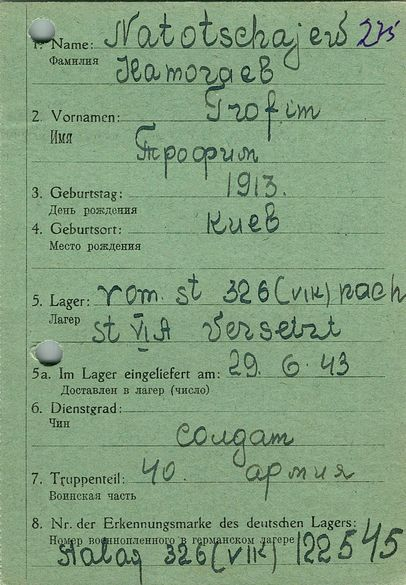 1. Name: Natotschajew 275
Фамилия
Натогаев
2. Vornamen: Trofim
Имя
Трофим
3. Geburtstag: 1913.
День рождения
4. Geburtsort: Киев
Место рождения
5. Lager: Vom. st 326 (VIK) nach
Лагер
st VI A Versetzt
5a. Im Lager eingeliefert am: 29. 6. 43
Доставлен в лагер (число)
6. Dienstgrad:
Чин
солдат
7. Truppenteil: 40. армия
Воинская часть
8. Nr. der Erkennungsmarke des deutschen Lagers:
Номер военнопленного в германском лагере
Stalag 326 (VIK) 122545